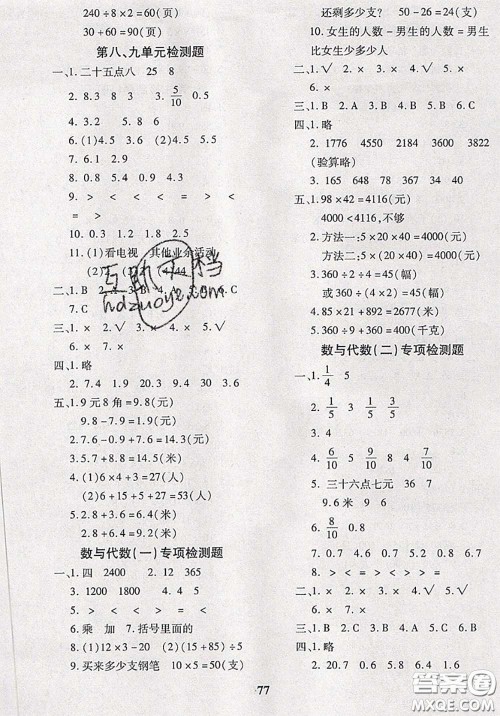 240÷8×2=60(页)
30+60=90(页)
第八、九单元检测题
一、1.二十五点八 25 8
2.8.3 8 3 3.5/10 0.5
4.3.2 5.8 6
6.(1)4.5 3.5 (2)4.5
7.6.1 2.9
8.0.4 0.9 0.7 0.1
9.> < < = > <
10.0.3 1.2 1.5 2.4
11.(1)看电视 其他业余活动
7.C
三、1.× 2.√ 3.× 4.√ 5.√
6.× 7.×
四、1.略
2.7.4 1.9 20.3 9.4 30
五、1.9元8角=9.8(元)
9.8-9.1=0.7(元)
2.7.6-0.9+7.6=14.3(元)
3.5.7+8.8=14.5(米)
4.(1)6×4+3=27(人)
(2)6+15+5+27=53(人)
5.2.8+0.8=3.6(米)
3.6+2.8=6.4(米)
数与代数(一)专项检测题
一、1.四 2400 2.12 365
3.1200 21 45 9
5.> < > < = >
6.乘 加 7.括号里面的
8.(1)12×3-20 (2)(12-5)×6
9.买来多少支钢笔 10×5=50(支)
还剩多少支? 50-26=24(支)
10.女生的人数-男生的人数=男生
比女生少多少人
二、1.√ 2.× 3.× 4.√ 5.×
三、1.B 2.A 3.A 4.B 5.B 6.C
四、1.略
2.1776 4550 2184 3600 3822
(验算略)
3.165 648 38 36 34 70
五、1.98×42=4116(元)
4000<4116,不够
2.方法一:5×20×40=4000(元)
方法二:5×(20×40)=4000(元)
3.360÷2÷4=45(幅)
或360÷(2×4)=45(幅)
4.85×21+892=2677(米)
5.360÷9×10=400(千克)
数与代数(二)专项检测题
一、1.1/4 5
2.1/5 3 1/5 3/5
3.略
4.6/10 0.6 8 4 8/10 0.8
5.三十六点七元 36 7
9.6米 9 6
6.8/10 0.8
7.0.6 0.2 0.7
8.< < = > < <
二、1.× 2.× 3.× 4.√ 5.√
三、1.B 2.C 3.A 4.C 5.C 6.B
四、1.略
2.15.1 0.4 13 0.4
77